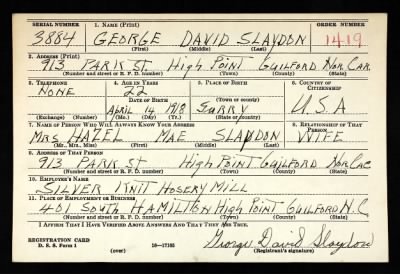 SERIAL NUMBER 1. NAME (Print) ORDER NUMBER
3884 GEORGE DAVID SLAYDON 1419
(First) (Middle) (Last)
2. ADDRESS (Print)
913 PARK ST High Point GUILFORD Nor Car
(Number and street or R. F. D. number) (Town) (County) (State)
3. TELEPHONE 4. AGE IN YEARS 5. PLACE OF BIRTH 6. COUNTRY OF CITIZENSHIP
NONE 22
DATE OF BIRTH (Town or county)
April 14 1918 Surry U.S.A
(Exchange) (Number) (Mo.) (Day) (Yr.) (State or country)
7. NAME OF PERSON WHO WILL ALWAYS KNOW YOUR ADDRESS 8. RELATIONSHIP OF THAT PERSON
Mrs HAZEL MAE SLAYDON WIFE
(Mr., Mrs., Miss) (First) (Middle) (Last)
9. ADDRESS OF THAT PERSON
913 PARK ST High Point GUILFORD Nor Car
(Number and street or R. F. D. number) (Town) (County) (State)
10. EMPLOYER'S NAME
SILVER KNIT HOSERY MILL
11. PLACE OF EMPLOYMENT OR BUSINESS
401 SOUTH HAMILTON High Point GUILFORD N.C.
(Number and street or R. F. D. number) (Town) (County) (State)
I AFFIRM THAT I HAVE VERIFIED ABOVE ANSWERS AND THAT THEY ARE TRUE.
REGISTRATION CARD George David Slaydon
D. S. S. Form 1 (over) 16-17105 (Registrant's signature)